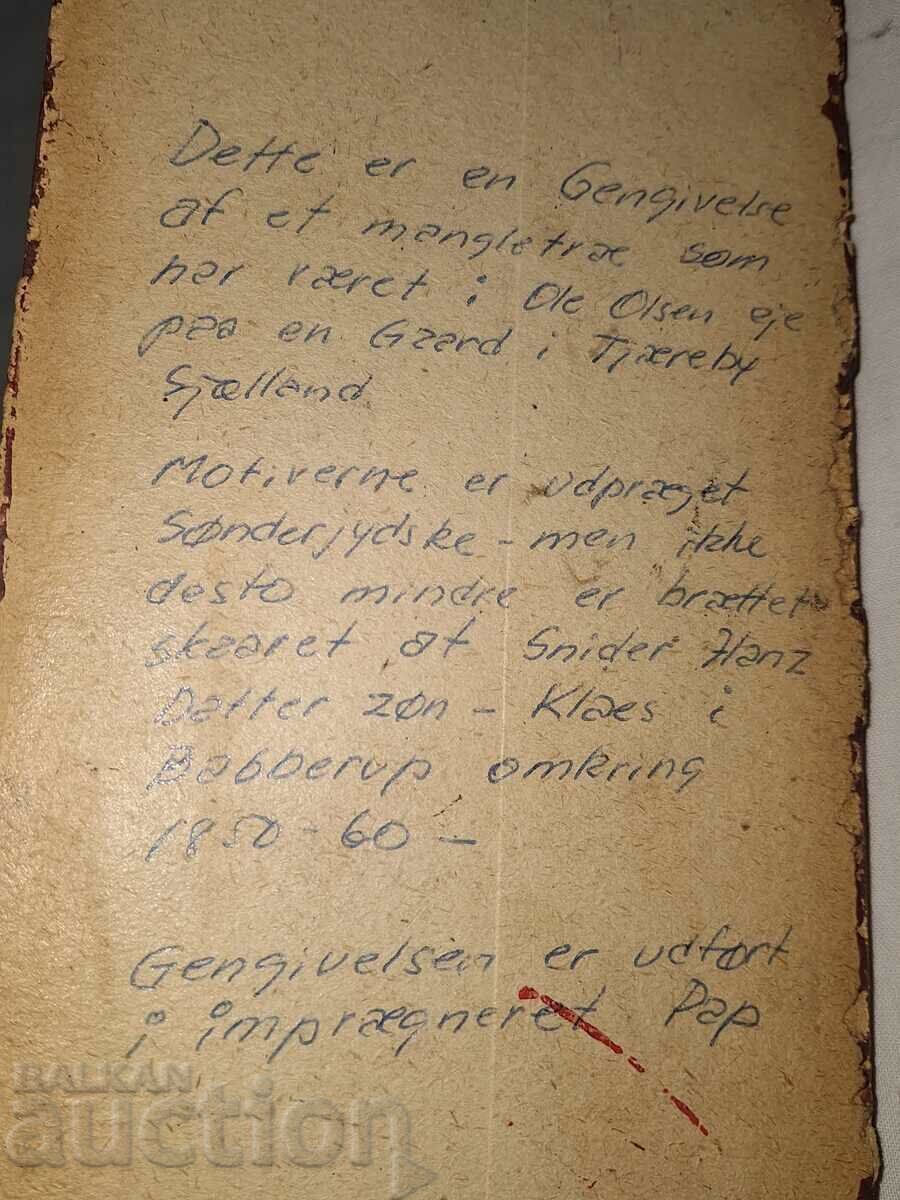 Dette er en Gengivelse
af et mangletræ som
har været i Ole Olsen eje
paa en Gaard i Tjæreby
Sjælland
Motiverne er udpræget
Sønderjydske - men ikke
desto mindre er brættet
skaaret af Snider Hanz
Datter zøn - Klaes i
Babberup omkring
1850-60 -
Gengivelsen er udført
i imprægneret Pap
BALKAN
auction